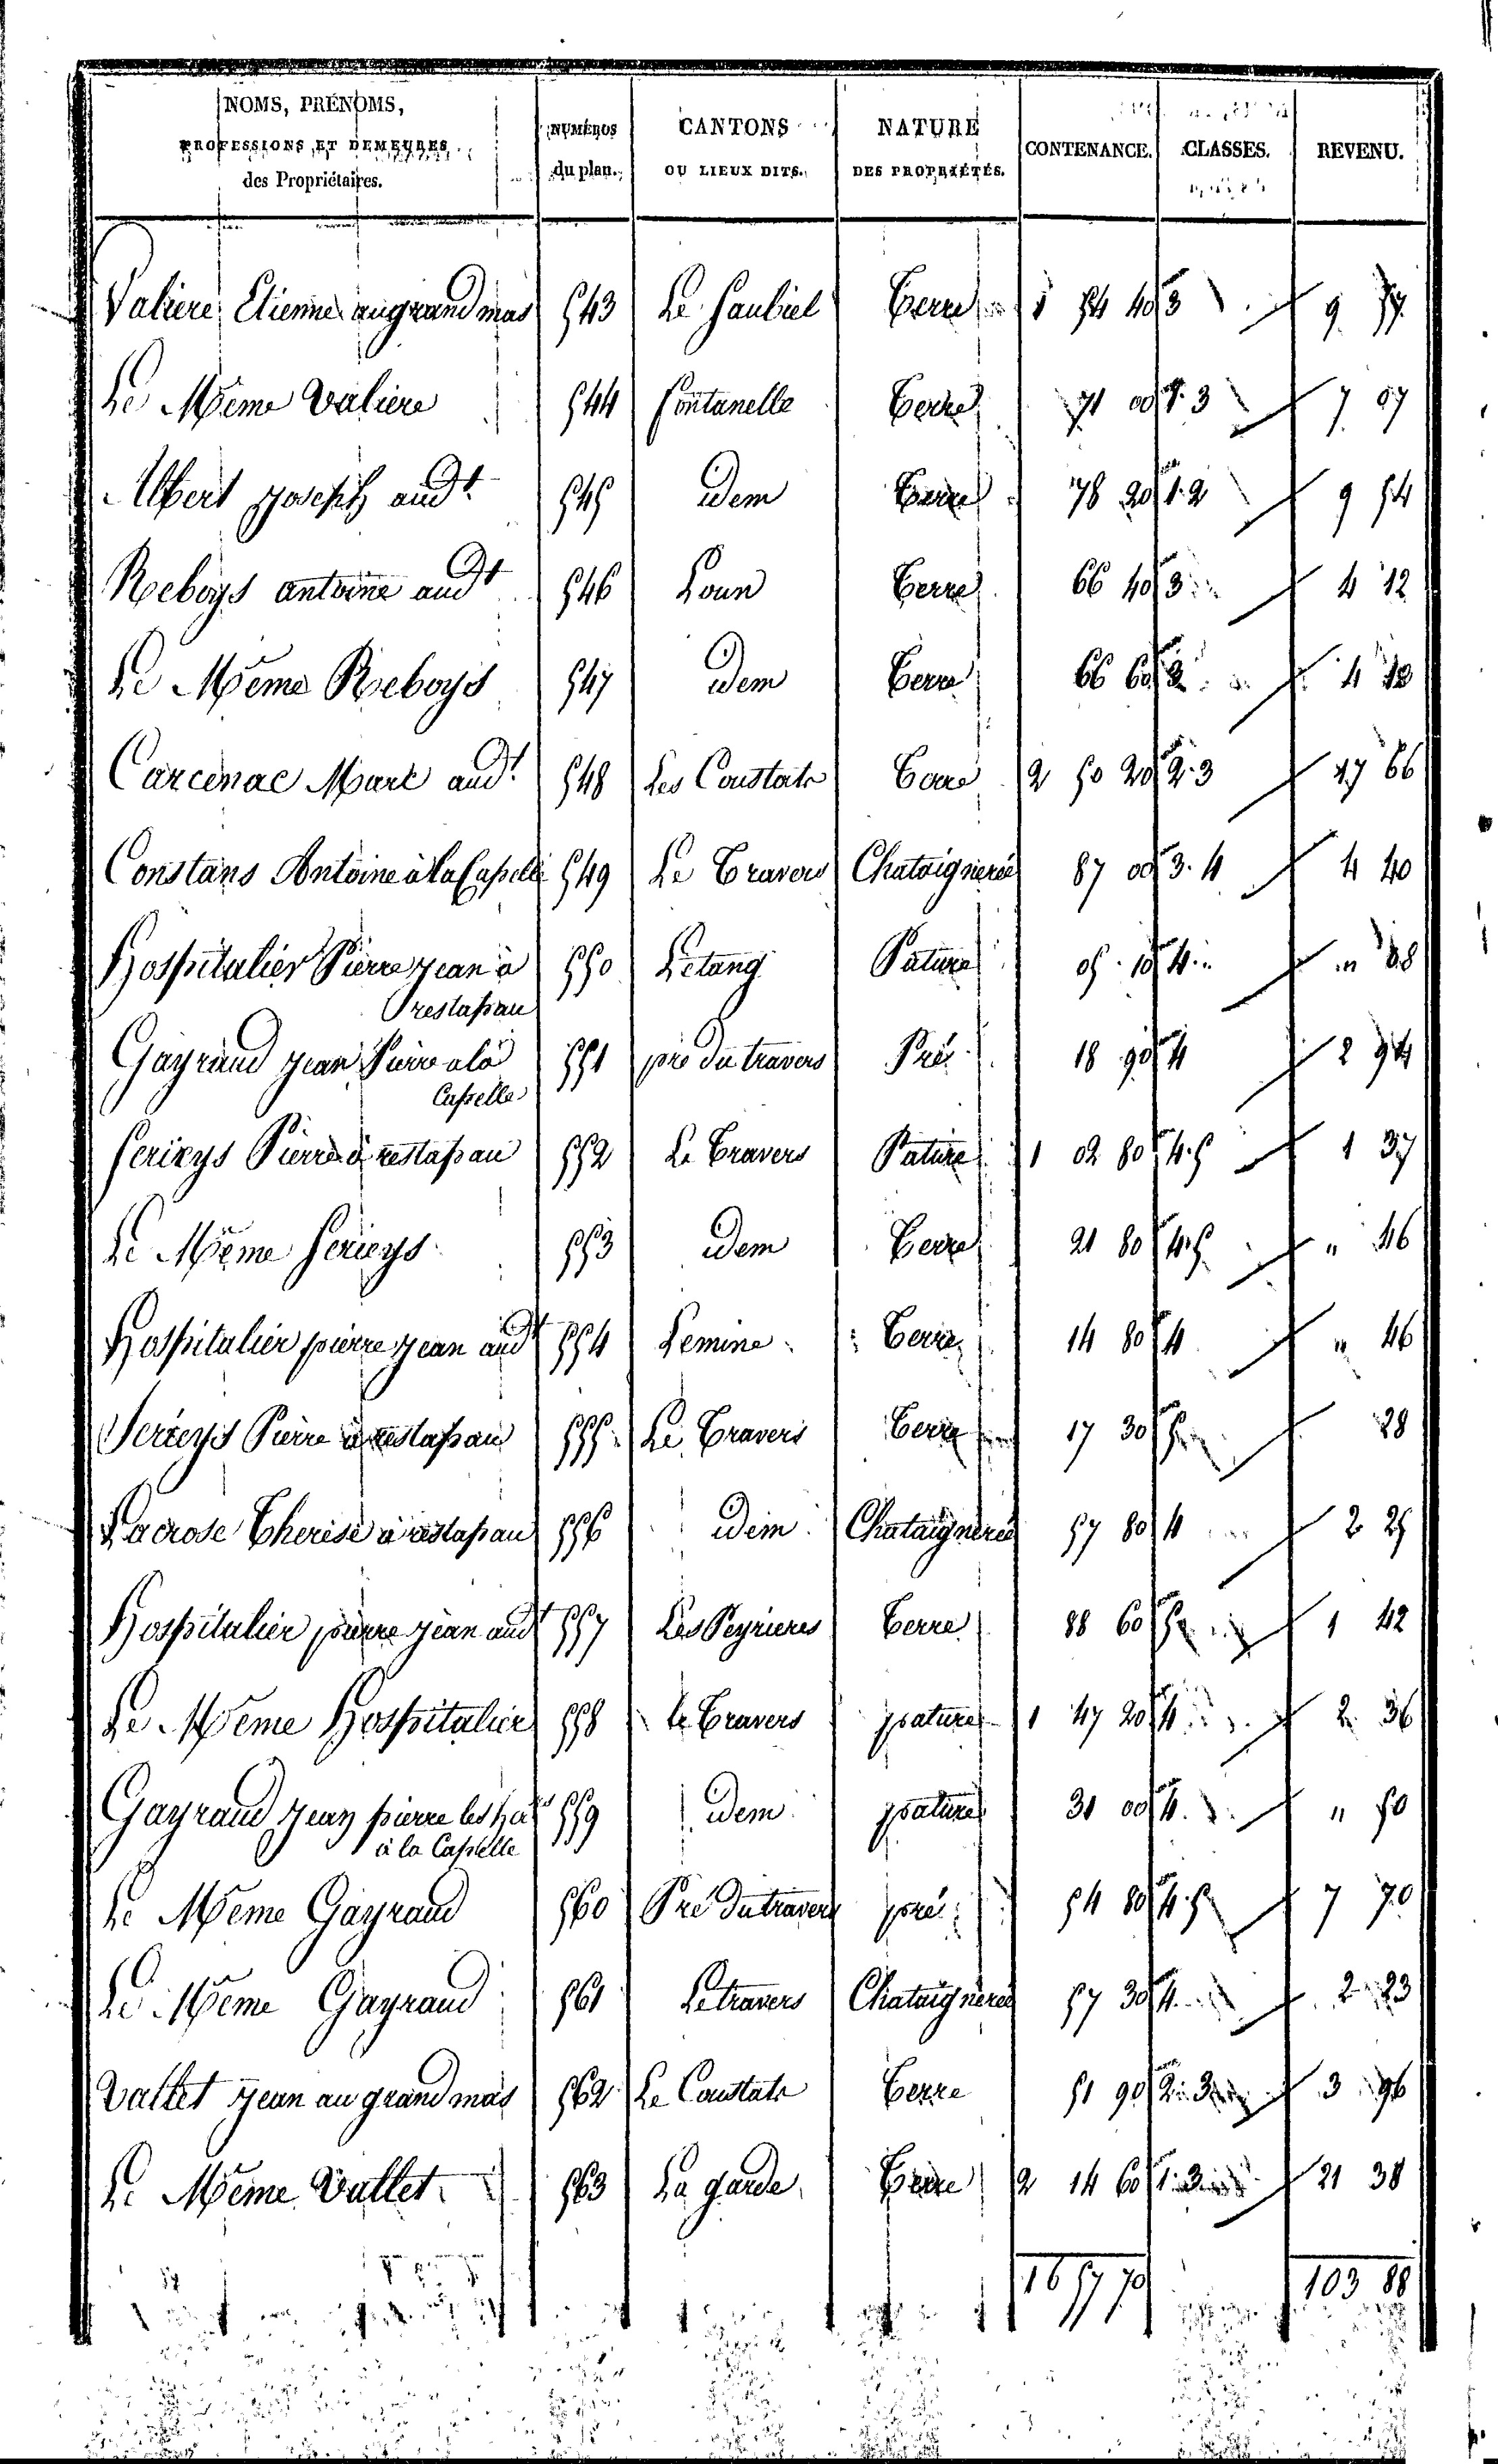 NOMS, PRÉNOMS, PROFESSIONS ET DEMEURES des Propriétaires. NUMÉROS du plan. CANTONS OU LIEUX DITS. NATURE DES PROPRIÉTÉS. CONTENANCE. CLASSES. REVENU.
Valiere Etienne au grand mas 543 Le Saubiel Terre 1 54 40 3 9 57
Le Même Valiere 544 Fontanelle Terre 71 00 1.3 7 07
Albert Joseph audt 545 idem Terre 78 20 1.2 9 54
Reboys antoine audt 546 Loun Terre 66 40 3 4 12
Le Même Reboys 547 idem Terre 66 60 3 4 13
Carcenac Marc audt 548 Les Coustats Terre 2 50 20 2.3 17 66
Constans Antoine à la Capelle 549 Le Travers Chataigneraie 87 00 3.4 4 40
Hospitalier Pierre Jean à 550 Letang Pature 05 10 4 " 08
restapau
Gayraud Jean Pierre a la 551 pré du travers Pré 18 90 4 2 94
Capelle
Serieys Pierre à restapau 552 Le Travers Pature 1 02 80 4.5 1 37
Le Même Serieys 553 idem Terre 21 80 4.5 " 46
Hospitalier pierre jean audt 554 Lemine Terre 14 80 4 " 46
Serieys Pierre à restapau 555 Le Travers Terre 17 30 5 28
Lacrose Therese à restapau 556 idem Chataigneraie 57 80 4 2 25
Hospitalier pierre jean audt 557 Les Peyrieres Terre 88 60 5 1 42
Le Même Hospitalier 558 le Travers pature 1 47 20 4 2 36
Gayraud Jean pierre 559 idem pature 31 00 4 " 50
à la Capelle
Le Même Gayraud 560 Pré du travers pré 54 80 4.5 7 70
Le Même Gayraud 561 Le travers Chataigneraie 57 30 4 2 23
Vallet Jean au grand mas 562 Le Coustats Terre 51 90 2.3 3 96
Le Même Vallet 563 La garde Terre 2 14 60 1.3 21 38
16 57 70 103 88